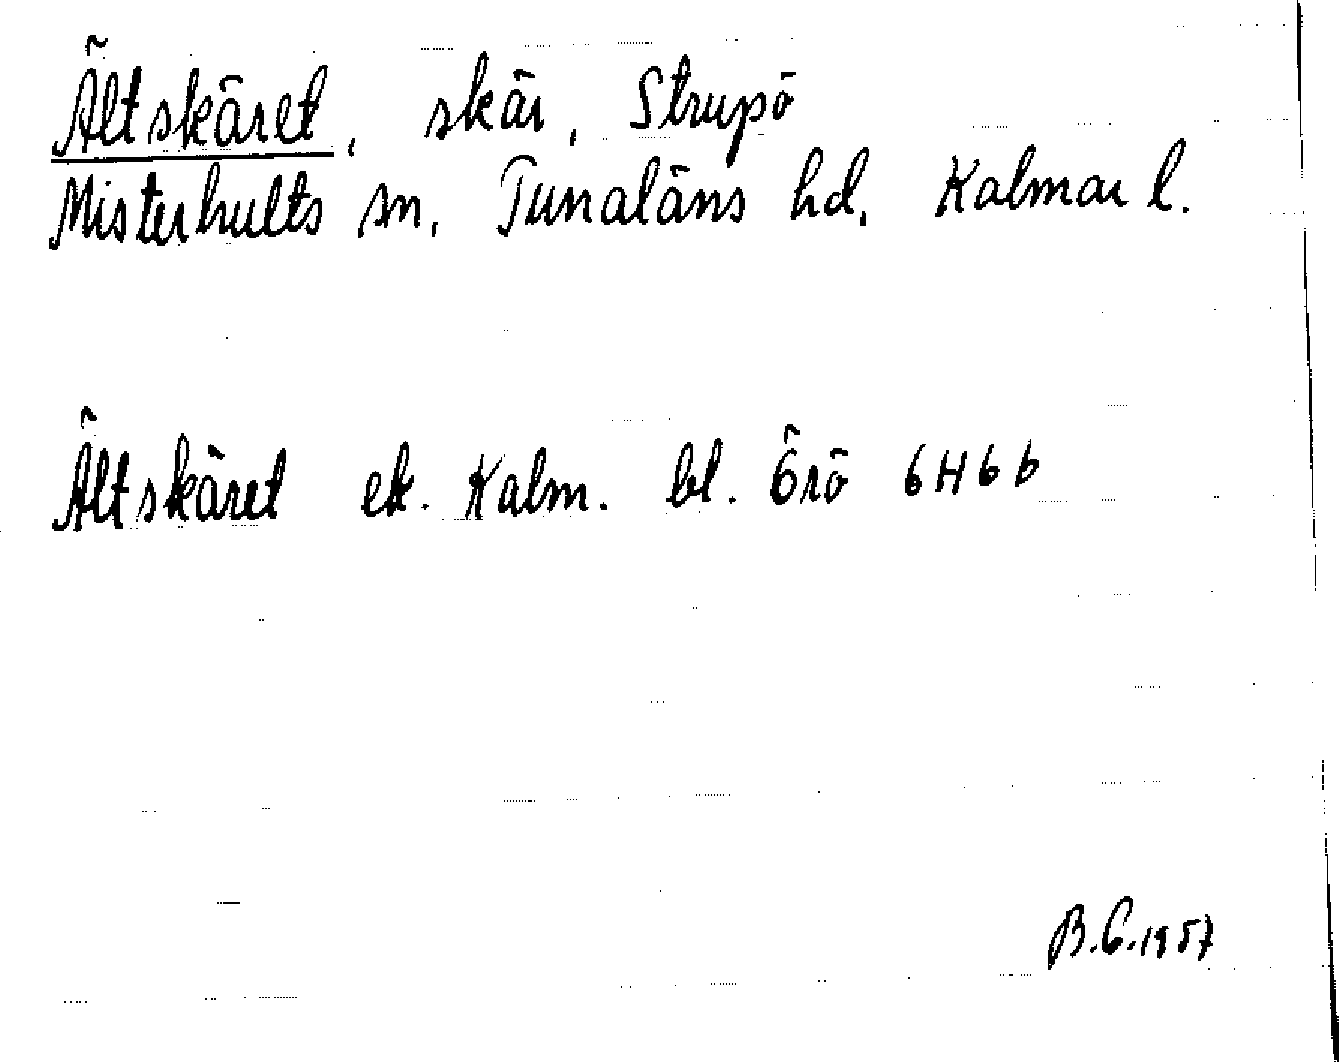 Ältskäret, skär, Strupö
Misterhults sn, Tunaläns hd, Kalmar l.
Ältskäret ek. Kalm. bl. Örö 6H6b
B.G. 1957